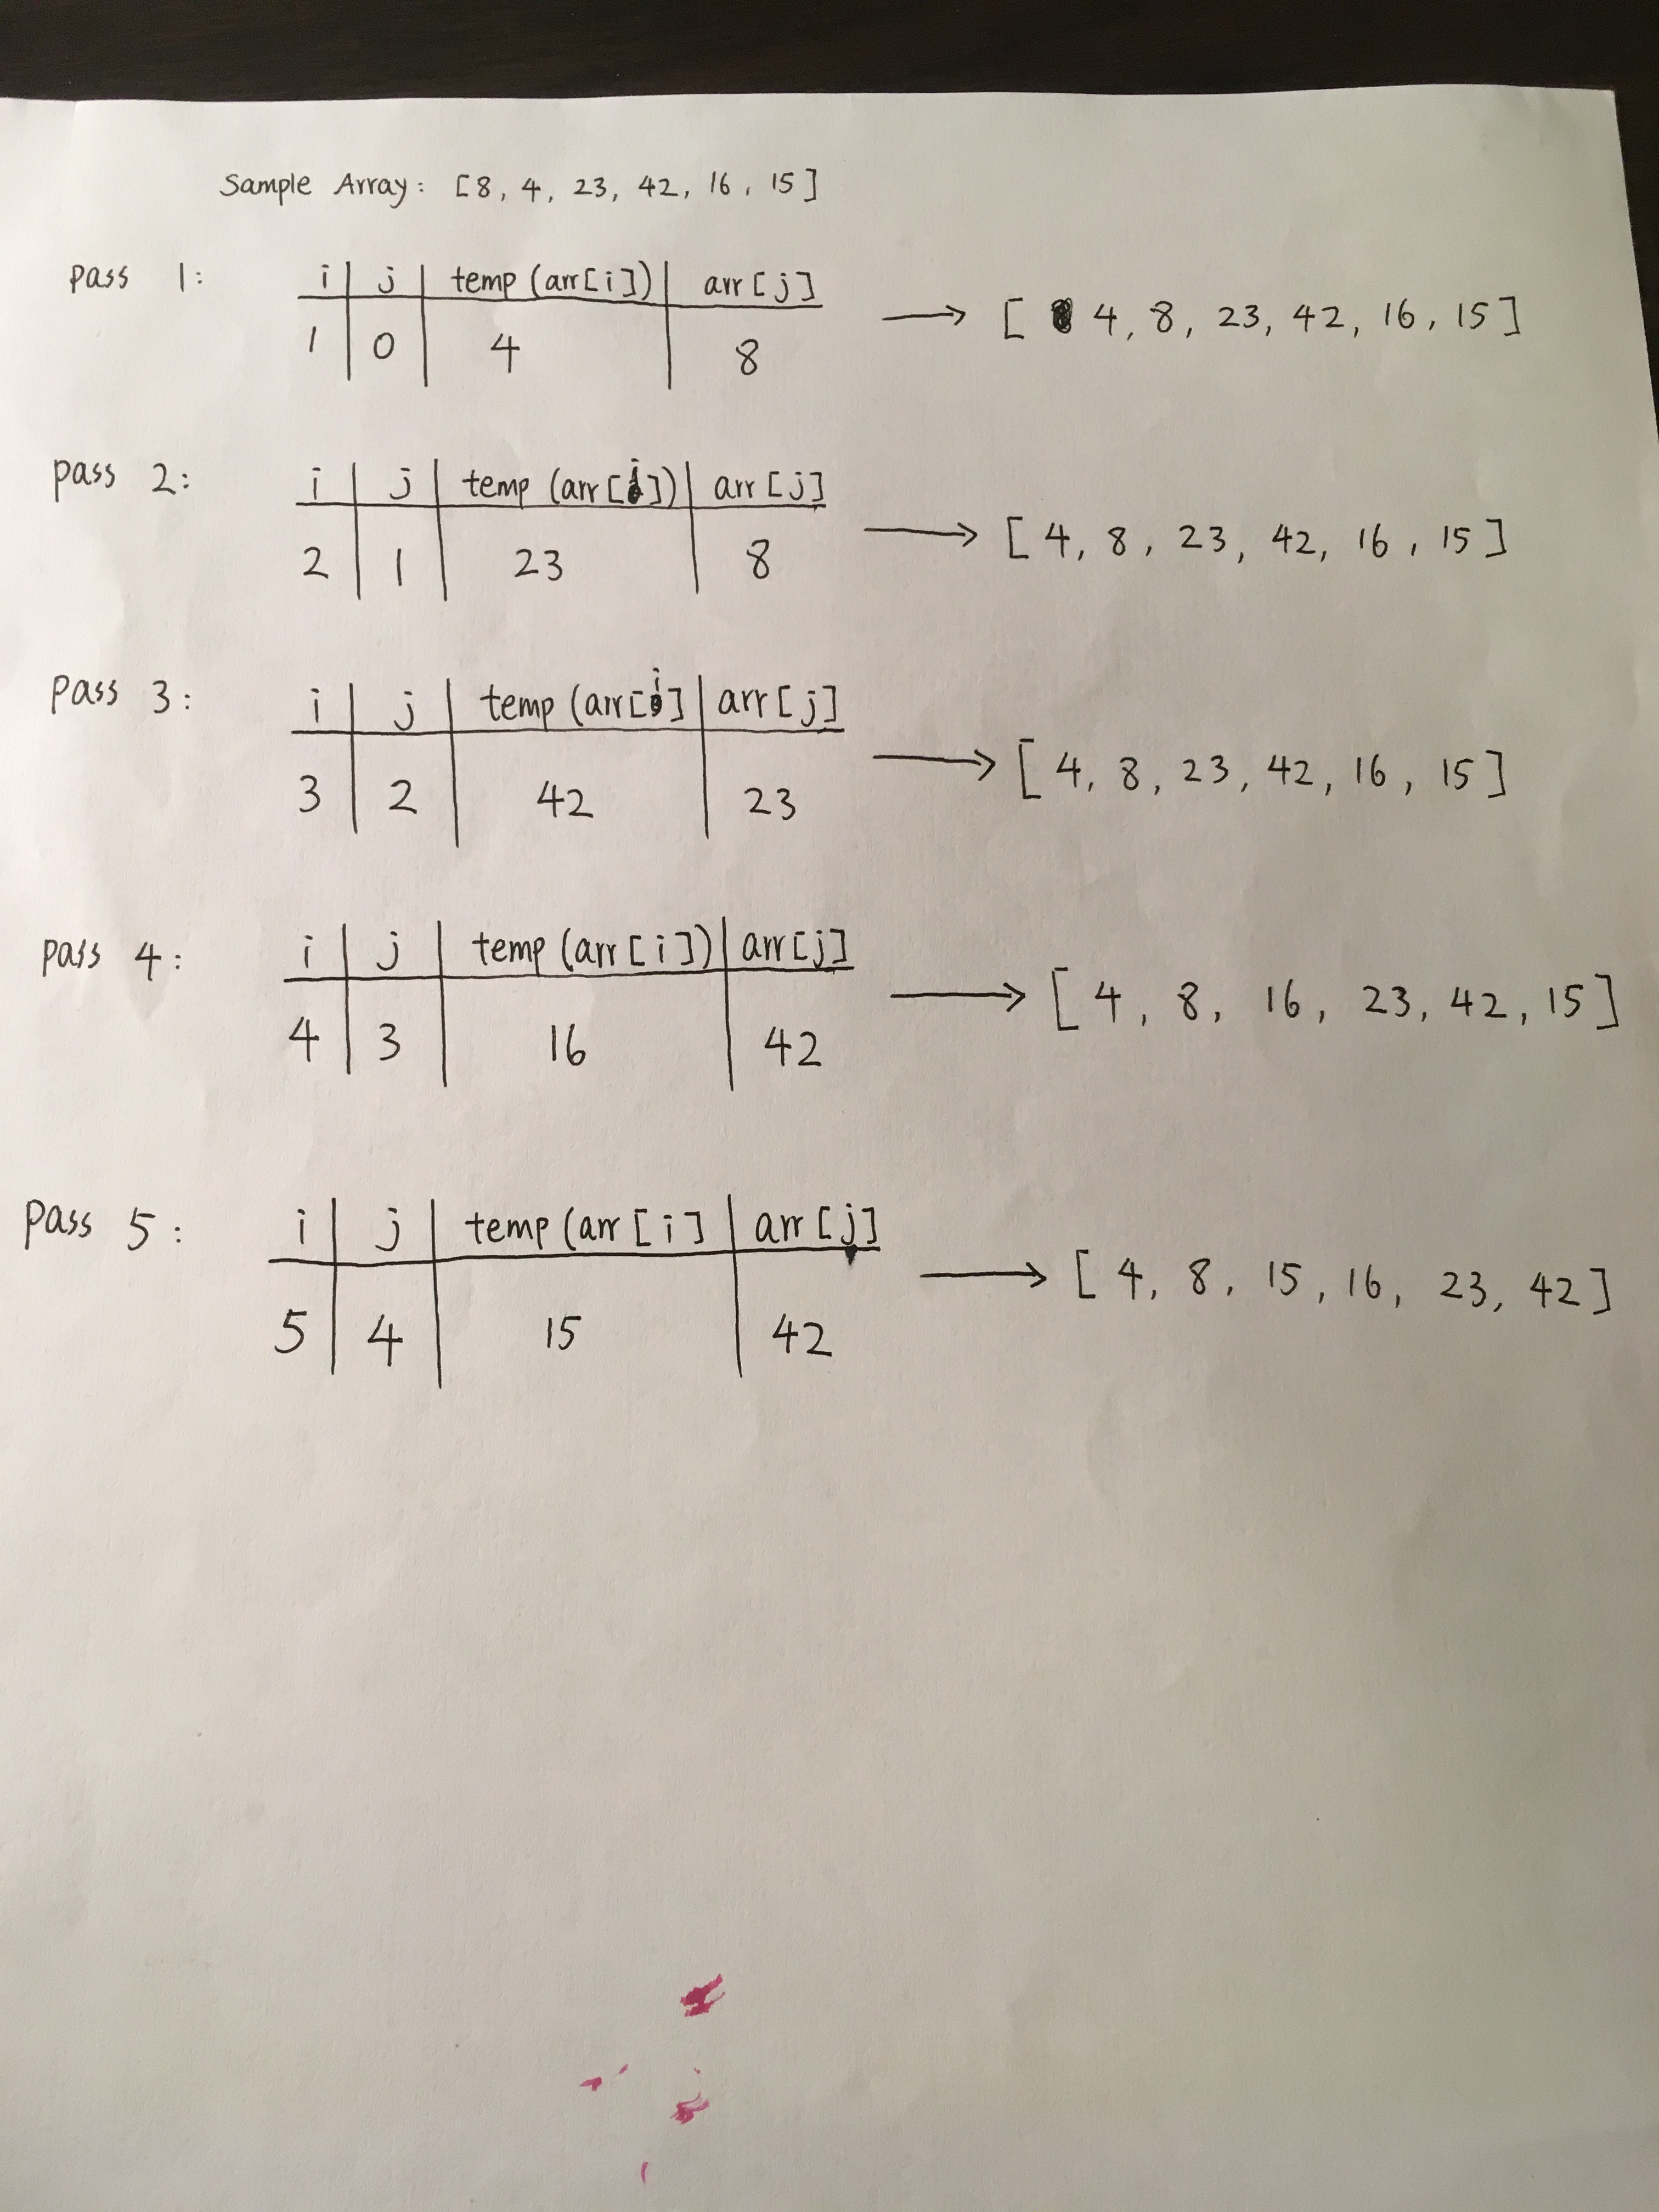 Sample Array: [8, 4, 23, 42, 16, 15]
Pass 1: i j temp (arr[i]) arr[j]
1 0 4 8 → [4, 8, 23, 42, 16, 15]
Pass 2: i j temp (arr[i]) arr[j]
2 1 23 8 → [4, 8, 23, 42, 16, 15]
Pass 3: i j temp (arr[i] arr[j]
3 2 42 23 → [4, 8, 23, 42, 16, 15]
Pass 4: i j temp (arr[i]) arr[j]
4 3 16 42 → [4, 8, 16, 23, 42, 15]
Pass 5: i j temp (arr[i] arr[j]
5 4 15 42 → [4, 8, 15, 16, 23, 42]